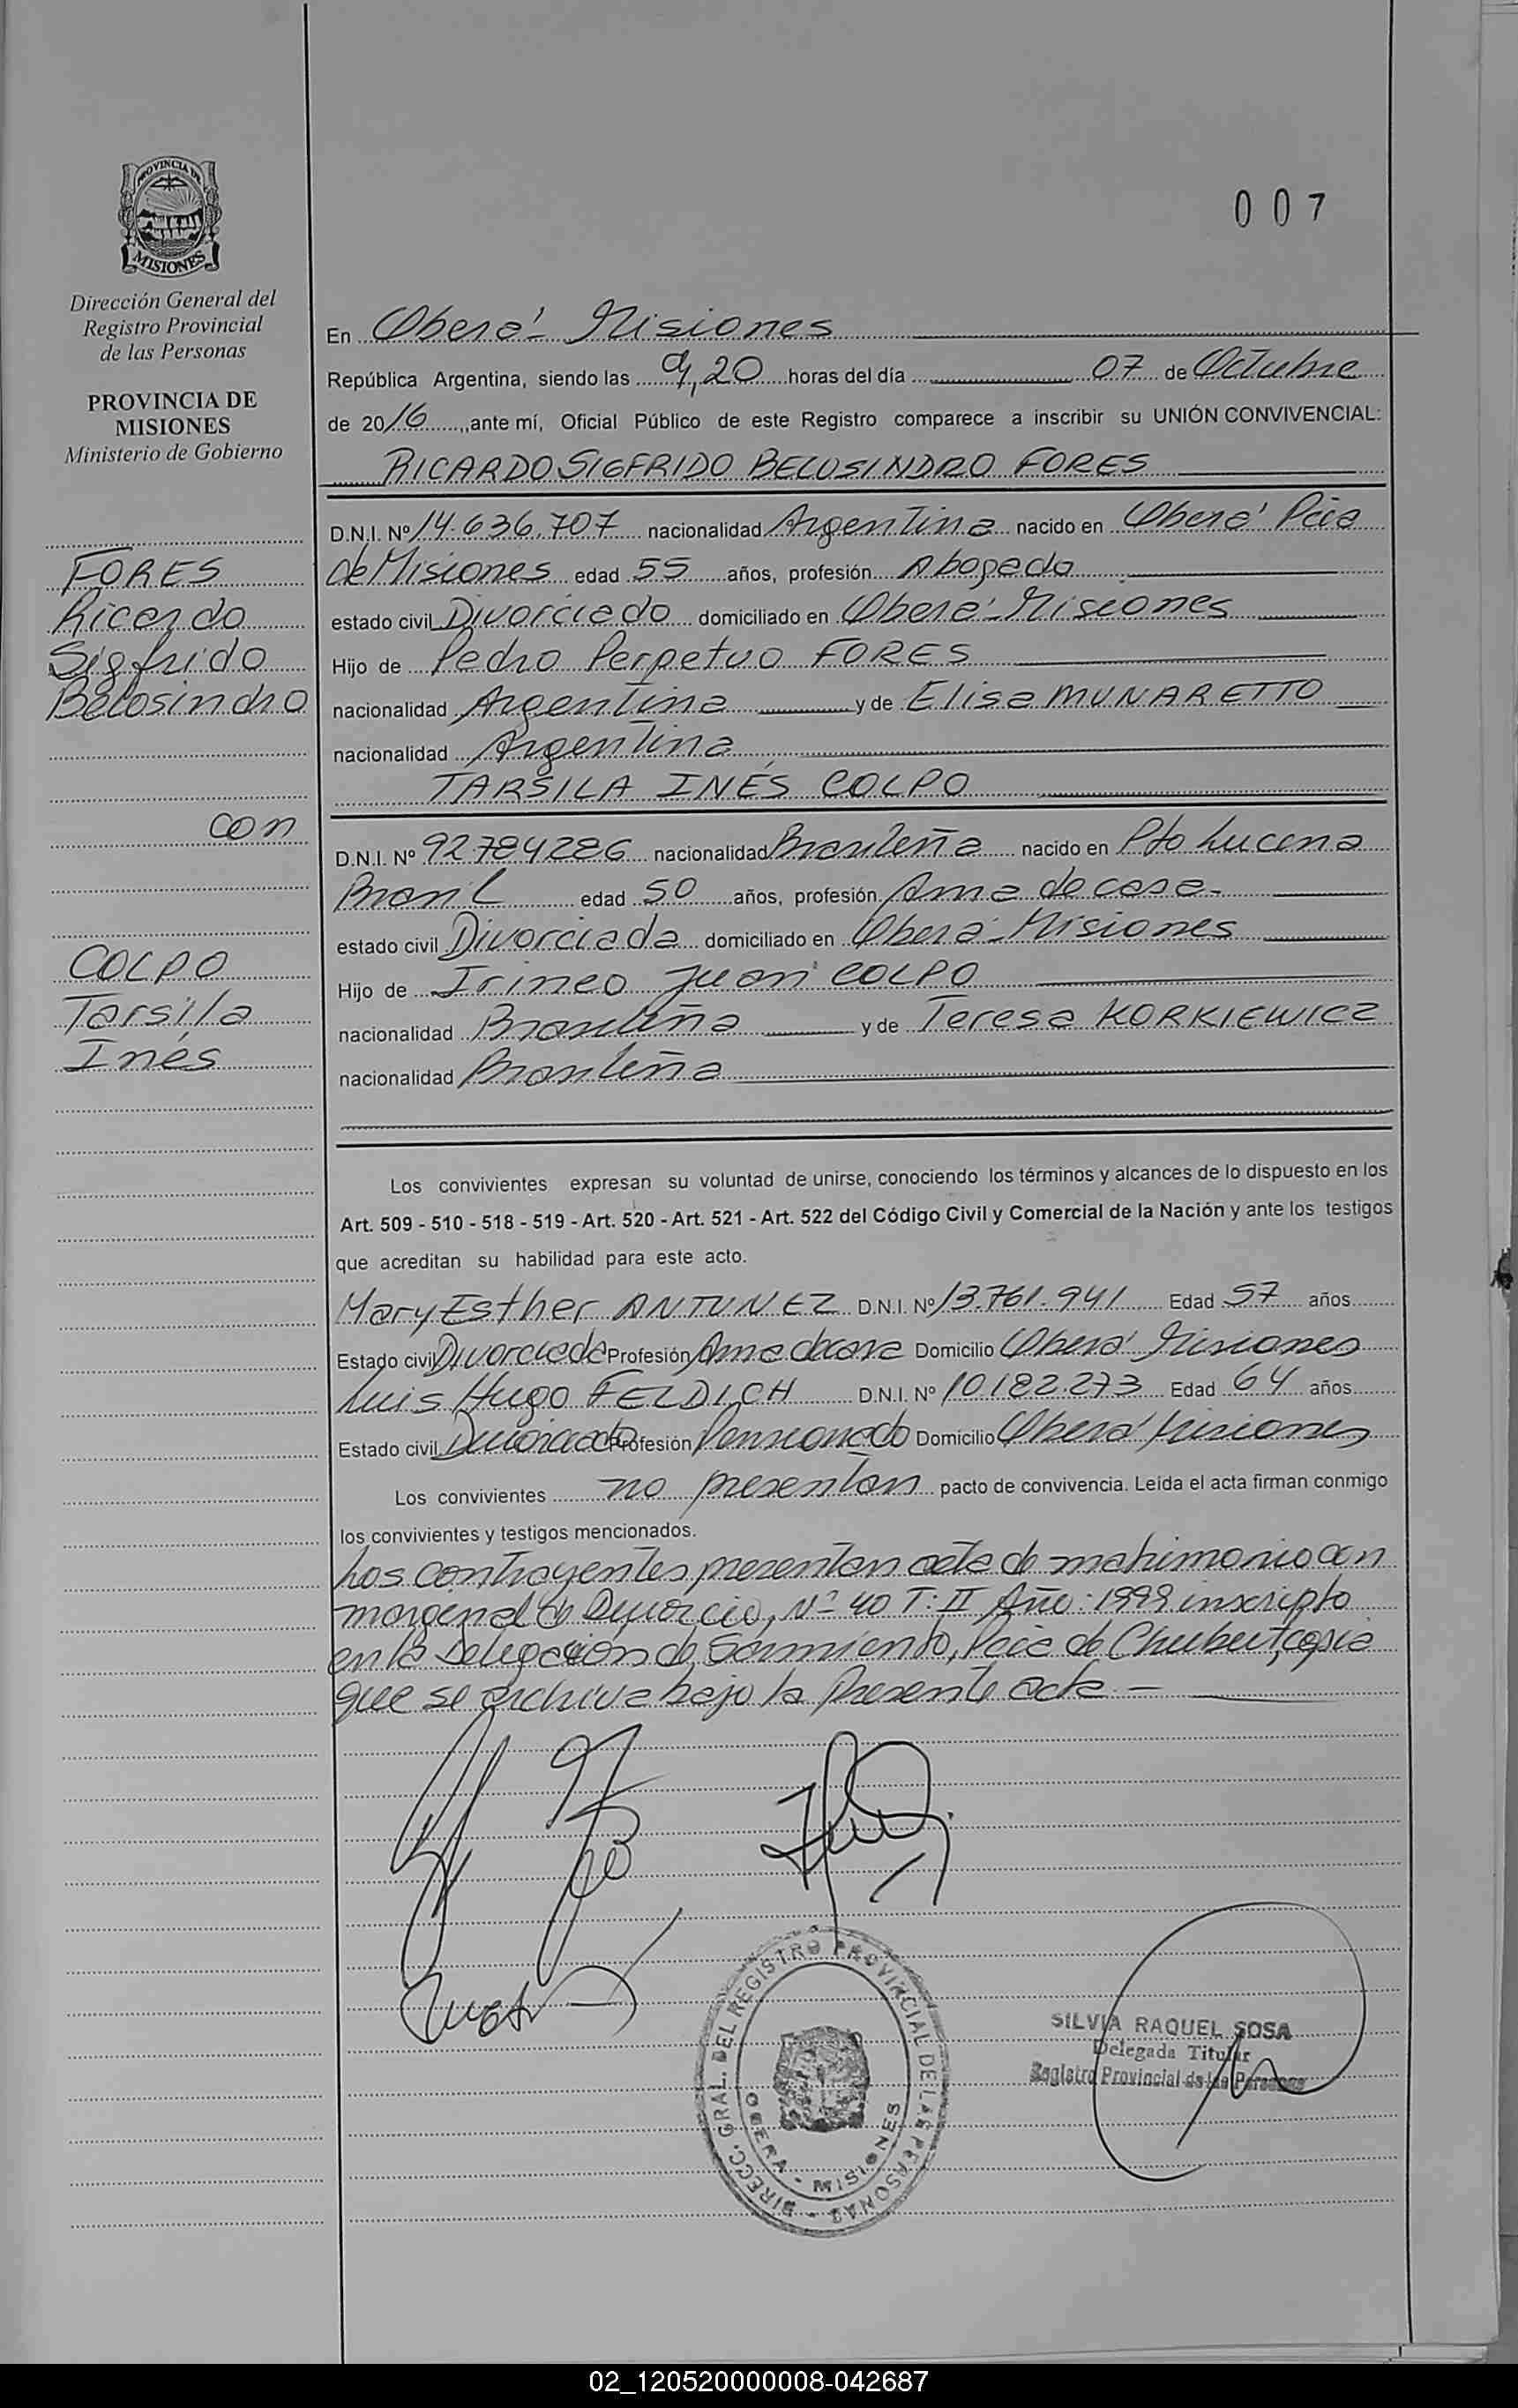 PROVINCIA DE
MISIONES
Dirección General del
Registro Provincial
de las Personas
PROVINCIA DE
MISIONES
Ministerio de Gobierno
FORES
Ricardo
Sigfrido
Belosindro
con
COLPO
Tarsila
Inés
007
En Oberá - Misiones
República Argentina, siendo las 9,20 horas del día 07 de Octubre
de 2016, ante mí, Oficial Público de este Registro comparece a inscribir su UNIÓN CONVIVENCIAL:
RICARDO SIGFRIDO BELOSINDRO FORES
D.N.I. Nº 14.636.707 nacionalidad Argentina nacido en Oberá Pcia
de Misiones edad 55 años, profesión Abogado
estado civil Divorciado domiciliado en Oberá - Misiones
Hijo de Pedro Perpetuo FORES
nacionalidad Argentina y de Elisa MUNARETTO
nacionalidad Argentina
TARSILA INÉS COLPO
D.N.I. Nº 92784286 nacionalidad Brasileña nacido en Pto Lucena
Brasil edad 50 años, profesión Ama de casa-
estado civil Divorciada domiciliado en Oberá - Misiones
Hijo de Irineo Juan COLPO
nacionalidad Brasileña y de Teresa KORKIEWICZ
nacionalidad Brasileña
Los convivientes expresan su voluntad de unirse, conociendo los términos y alcances de lo dispuesto en los
Art. 509 - 510 - 518 - 519 - Art. 520 - Art. 521 - Art. 522 del Código Civil y Comercial de la Nación y ante los testigos
que acreditan su habilidad para este acto.
Mary Esther ANTUNEZ D.N.I. Nº 13.761.941 Edad 57 años
Estado civil Divorciada Profesión Ama de casa Domicilio Oberá Misiones
Luis Hugo FELDICH D.N.I. Nº 10.182.273 Edad 64 años
Estado civil Divorciado Profesión Pensionado Domicilio Oberá Misiones
Los convivientes no presentan pacto de convivencia. Leída el acta firman conmigo
los convivientes y testigos mencionados.
Los contrayentes presentan acta de matrimonio con
marginal de Divorcio, Nº 40 T: II Año: 1999 inscripto
en la Delegación de Sarmiento, Pcia de Chubut, copia
que se archiva bajo la presente acta -
DIRECC. GRAL. DEL REGISTRO PROVINCIAL DE LAS PERSONAS
OBERA - MISIONES
SILVIA RAQUEL SOSA
Delegada Titular
Registro Provincial de las Personas
02_120520000008-042687